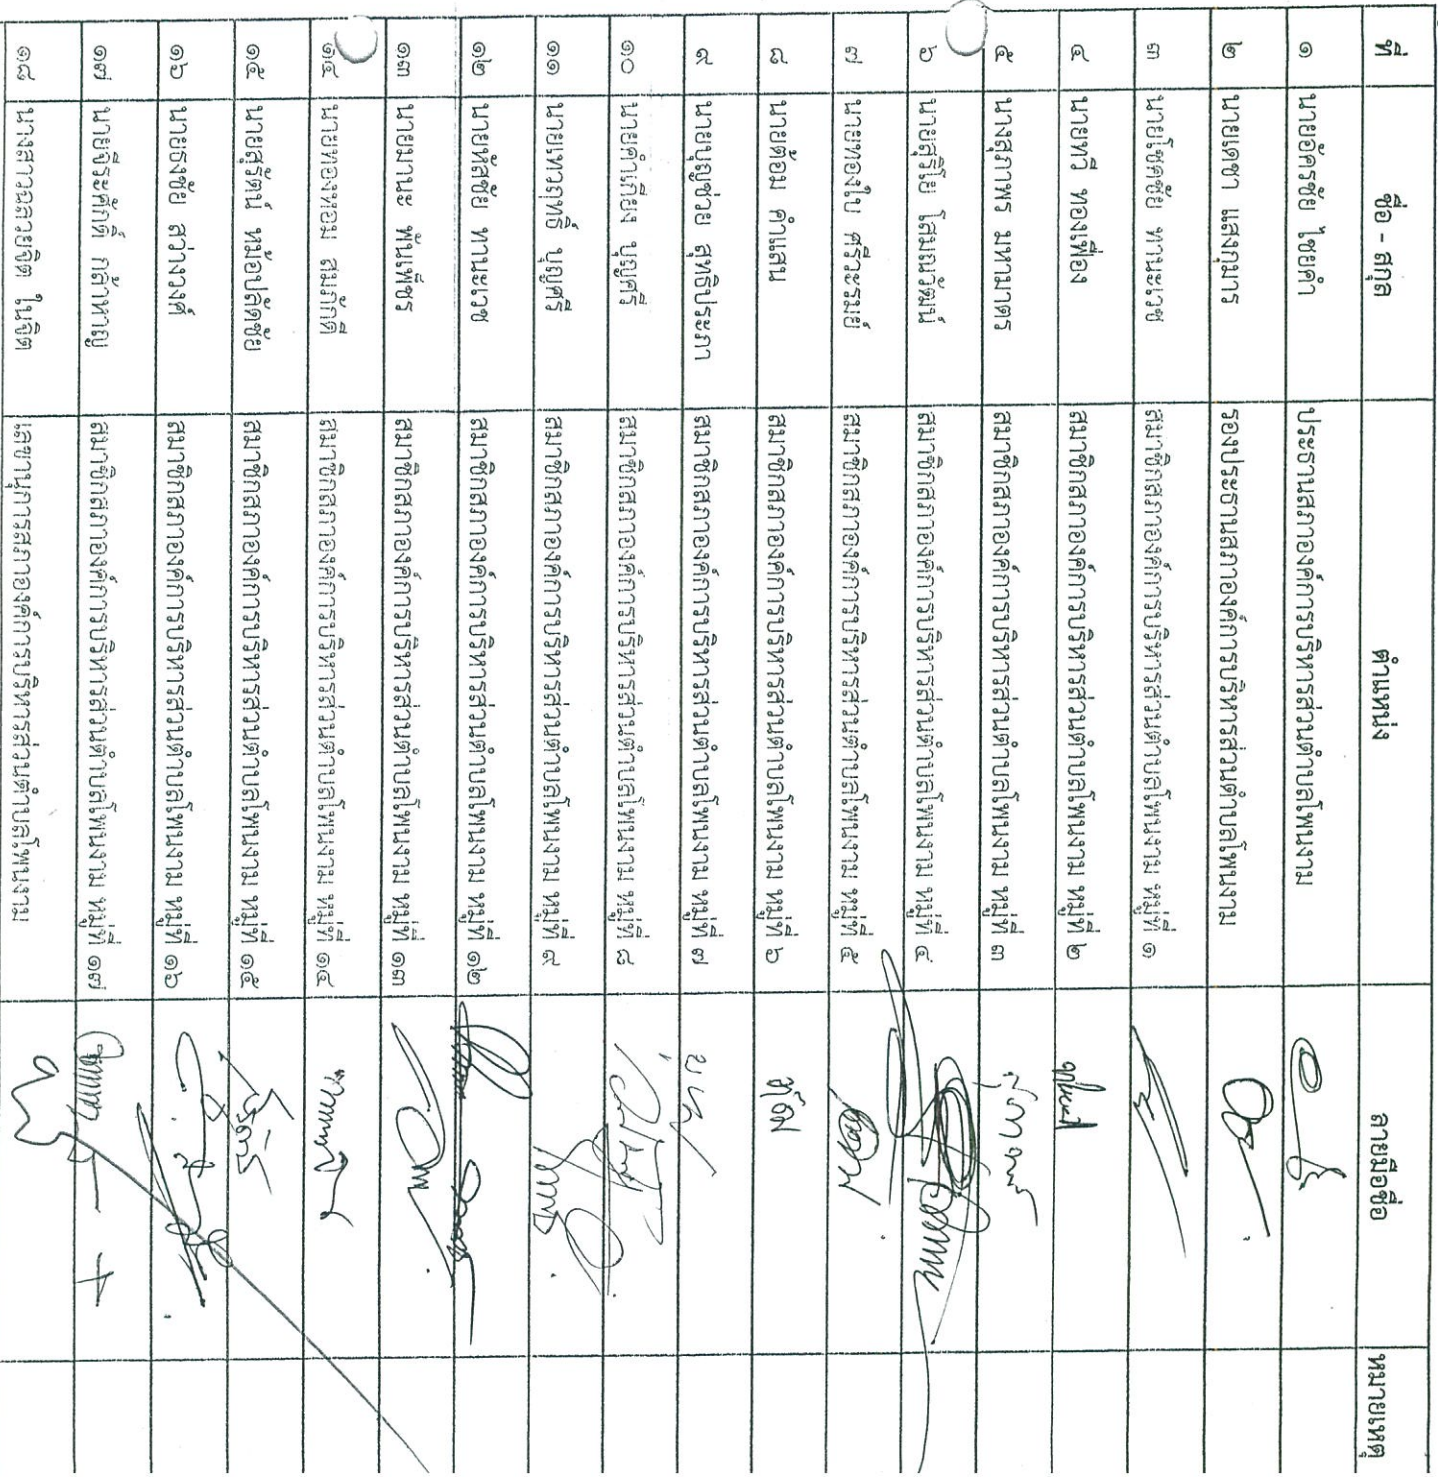 ที่ ชื่อ - สกุล ตำแหน่ง ลายมือชื่อ หมายเหตุ
๑ นายอัครชัย ไชยคำ ประธานสภาองค์การบริหารส่วนตำบลโพนงาม
๒ นายเดชา แสงกุมาร รองประธานสภาองค์การบริหารส่วนตำบลโพนงาม
๓ นายโชคชัย ทานะเวช สมาชิกสภาองค์การบริหารส่วนตำบลโพนงาม หมู่ที่ ๑
๔ นายทวี ทองเฟื่อง สมาชิกสภาองค์การบริหารส่วนตำบลโพนงาม หมู่ที่ ๒
๕ นางสุภาพร มหามาตร สมาชิกสภาองค์การบริหารส่วนตำบลโพนงาม หมู่ที่ ๓
๖ นายสุริโย โสมณวัฒน์ สมาชิกสภาองค์การบริหารส่วนตำบลโพนงาม หมู่ที่ ๔
๗ นายทองใบ ศรีวะรมย์ สมาชิกสภาองค์การบริหารส่วนตำบลโพนงาม หมู่ที่ ๕
๘ นายต้อม คำแสน สมาชิกสภาองค์การบริหารส่วนตำบลโพนงาม หมู่ที่ ๖
๙ นายบุญช่วย สุทธิประภา สมาชิกสภาองค์การบริหารส่วนตำบลโพนงาม หมู่ที่ ๗
๑๐ นายคำเกียง บุญศรี สมาชิกสภาองค์การบริหารส่วนตำบลโพนงาม หมู่ที่ ๘
๑๑ นายเทวฤทธิ์ บุญศรี สมาชิกสภาองค์การบริหารส่วนตำบลโพนงาม หมู่ที่ ๙
๑๒ นายหัสชัย ทานะเวช สมาชิกสภาองค์การบริหารส่วนตำบลโพนงาม หมู่ที่ ๑๒
๑๓ นายมานะ พันเพ็ชร สมาชิกสภาองค์การบริหารส่วนตำบลโพนงาม หมู่ที่ ๑๓
๑๔ นายทองหอม สมภักดี สมาชิกสภาองค์การบริหารส่วนตำบลโพนงาม หมู่ที่ ๑๔
๑๕ นายสุรัตน์ หม้อปลัดชัย สมาชิกสภาองค์การบริหารส่วนตำบลโพนงาม หมู่ที่ ๑๕
๑๖ นายธงชัย สว่างวงค์ สมาชิกสภาองค์การบริหารส่วนตำบลโพนงาม หมู่ที่ ๑๖
๑๗ นายจิระศักดิ์ กล้าหาญ สมาชิกสภาองค์การบริหารส่วนตำบลโพนงาม หมู่ที่ ๑๗
๑๘ นางสาวฉลวยจิต ในจิต เลขานุการสภาองค์การบริหารส่วนตำบลโพนงาม